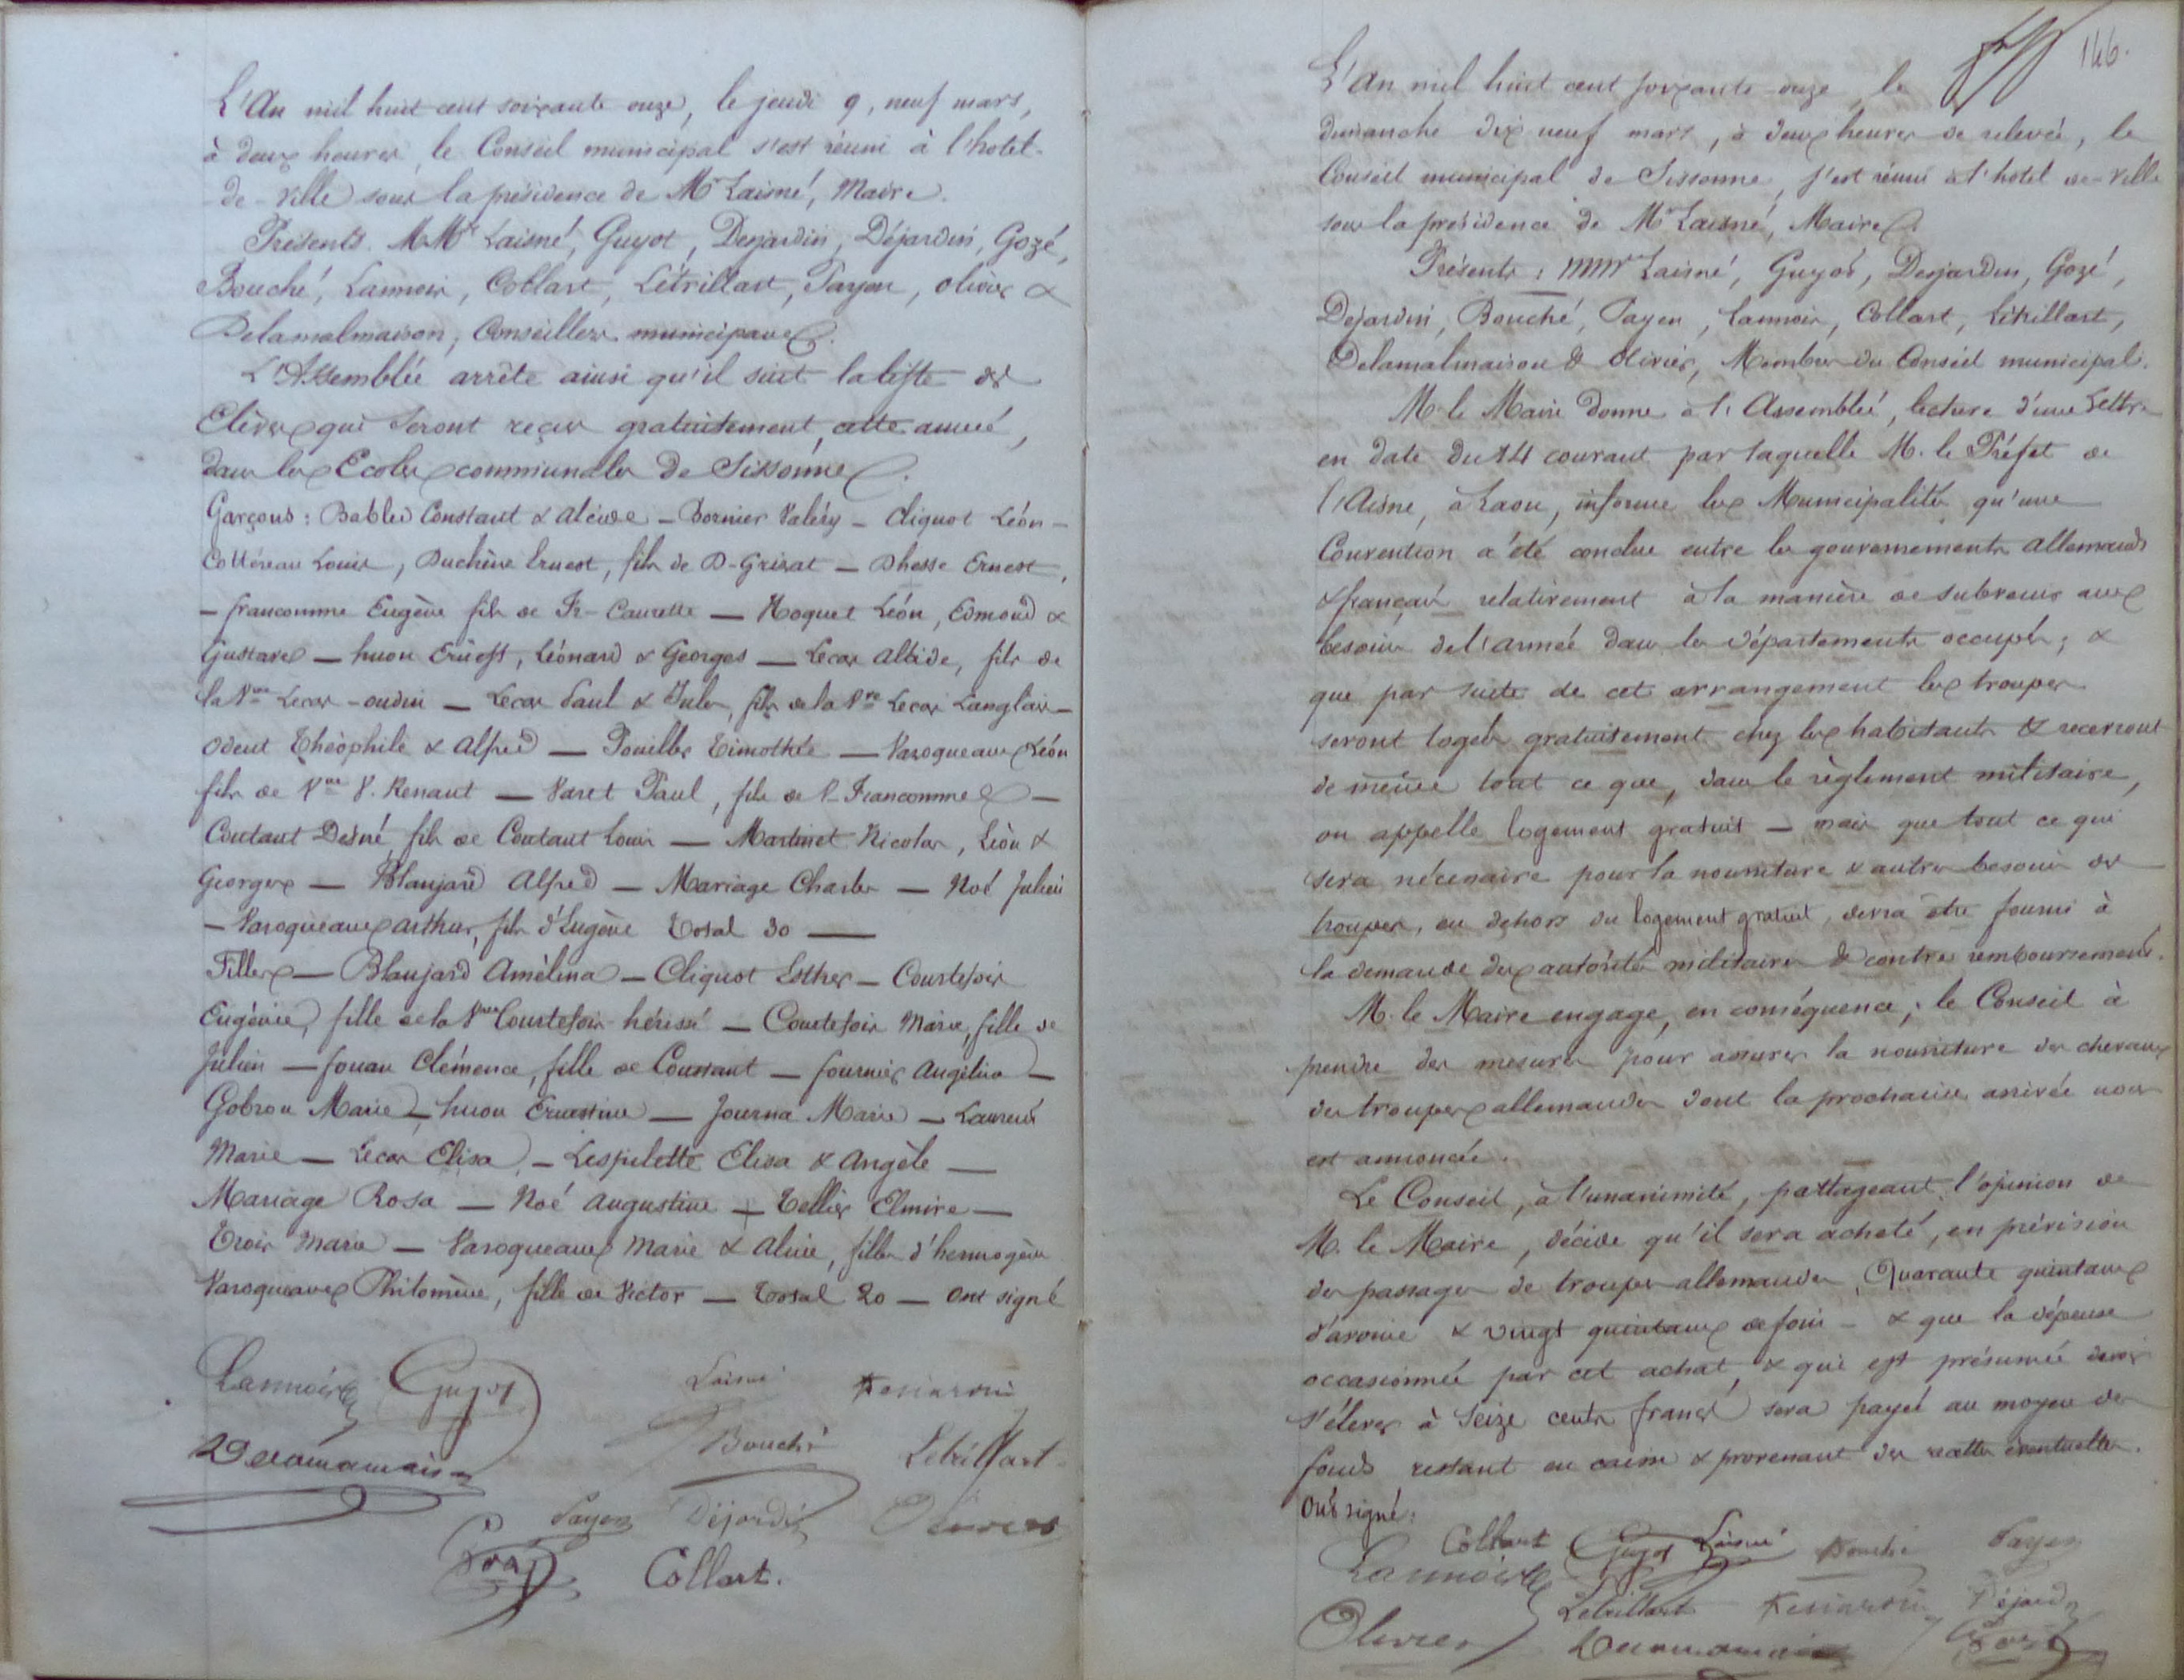 L'An mil huit cent soixante onze, le jeudi 9, neuf mars,
à deux heures le Conseil municipal s'est réuni à l'hotel-
-de-ville sous la présidence de Mr Laisné, Maire.
Présents. MMrs Laisné, Guyot, Desjardin, Déjardin, Gozé,
Bouché, Lannois, Collart, Létrillart, Payen, olivier &
Delamalmaison, Conseillers municipaux.
L'Assemblée arrête ainsi qu'il suit la liste des
Elèves qui seront reçus gratuitement, cette année,
dans les Ecoles communales de Sissonne.
Garçons : Babled Constant & alcide - Bornier Valéry - Cliquot Léon -
Cottéreau Louis, Duchêne Ernest, fils de D-Grizat — Dhesse Ernest,
— francomme Eugène fils de Fr-Caurette — Hoquet Léon, Edmond &
Gustave — huon Ernest, Léonard & Georges — Lecas Albide, fils de
la Vve Lecas-oudin — Lecas Paul & Jules, fils de la Vve Lecas Langlais —
Odent Théophile & Alfred — Pouilles Timothée — Varoqueaux Léon
fils de Vve V. Renaut — Varet Paul, fils de V-Francomme —
Coutant Désiré, fils de Coutant Louis — Martinet Nicolas, Léon &
Georges — Blanjard Alfred — Mariage Charles — Noé Julien
— Varoqueaux arthur, fils d'Eugène Total 30 —
Filles — Blanjard Amélina — Cliquot Esther — Courtefois
Eugénie, fille de la Vve Courtefois-hérissé — Courtefois Marie, fille de
Julien — fouan Clémence, fille de Constant — fournier Angélina —
Gobron Marie — huon Ernestine — Journa Marie — Laurent
Marie — Lecas Elisa — Lespilette Elisa & Angèle —
Mariage Rosa — Noé Augustine — Tellier Elmire —
Trois Marie — Varoqueaux Marie & Aline, filles d'hermogène
Varoqueaux Philomène, fille de Victor — Total 20 — Ont signé
Lannois Guyot Laisné Desjardin
Delamalmaison Bouché Letrillart
Payen Déjardin Olivier
Gozé Collart.
146.
L'An mil huit cent soixante-onze, le
dimanche dix neuf mars, à deux heures de relevée, le
Conseil municipal de Sissonne, s'est réuni à l'hotel de-ville
sous la présidence de Mr Laisné, Maire.
Présents : MMrs Laisné, Guyot, Desjardin, Gozé,
Dejardin, Bouché, Payen, Lannois, Collart, Létrillart,
Delamalmaison & Olivier, Membres du Conseil municipal.
M. le Maire donne à l'Assemblée, lecture d'une Lettre
en date du 14 courant par laquelle M. le Préfet de
l'Aisne, à Laon, informe les Municipalités qu'une
Convention a été conclue entre les gouvernements allemands
& français relativement à la manière de subvenir aux
besoins de l'armée dans les départements occupés ; &
que par suite de cet arrangement les troupes
seront logées gratuitement chez les habitants & recevront
de même tout ce que, dans le règlement militaire,
on appelle logement gratuit — mais que tout ce qui
sera nécessaire pour la nourriture & autres besoins des
troupes, en dehors du logement gratuit, devra être fourni à
la demande des autorités militaires & contre remboursement.
M. le Maire engage, en conséquence, le Conseil à
prendre des mesures pour assurer la nourriture des chevaux
des troupes allemandes dont la prochaine arrivée nous
est annoncée.
Le Conseil, à l'unanimité, partageant l'opinion de
M. le Maire, décide qu'il sera acheté, en prévision
des passages de troupes allemandes, Quarante quintaux
d'avoine & vingt quintaux de foin - & que la dépense
occasionnée par cet achat, & qui est présumée devoir
s'élever à Seize cents francs sera payée au moyen des
fonds restant en caisse & provenant des recettes éventuelles.
Ont signé :
Collart Guyot Laisné Bouché Payen
Lannois Letrillart Desjardin Déjardin
Olivier Delamalmaison Gozé